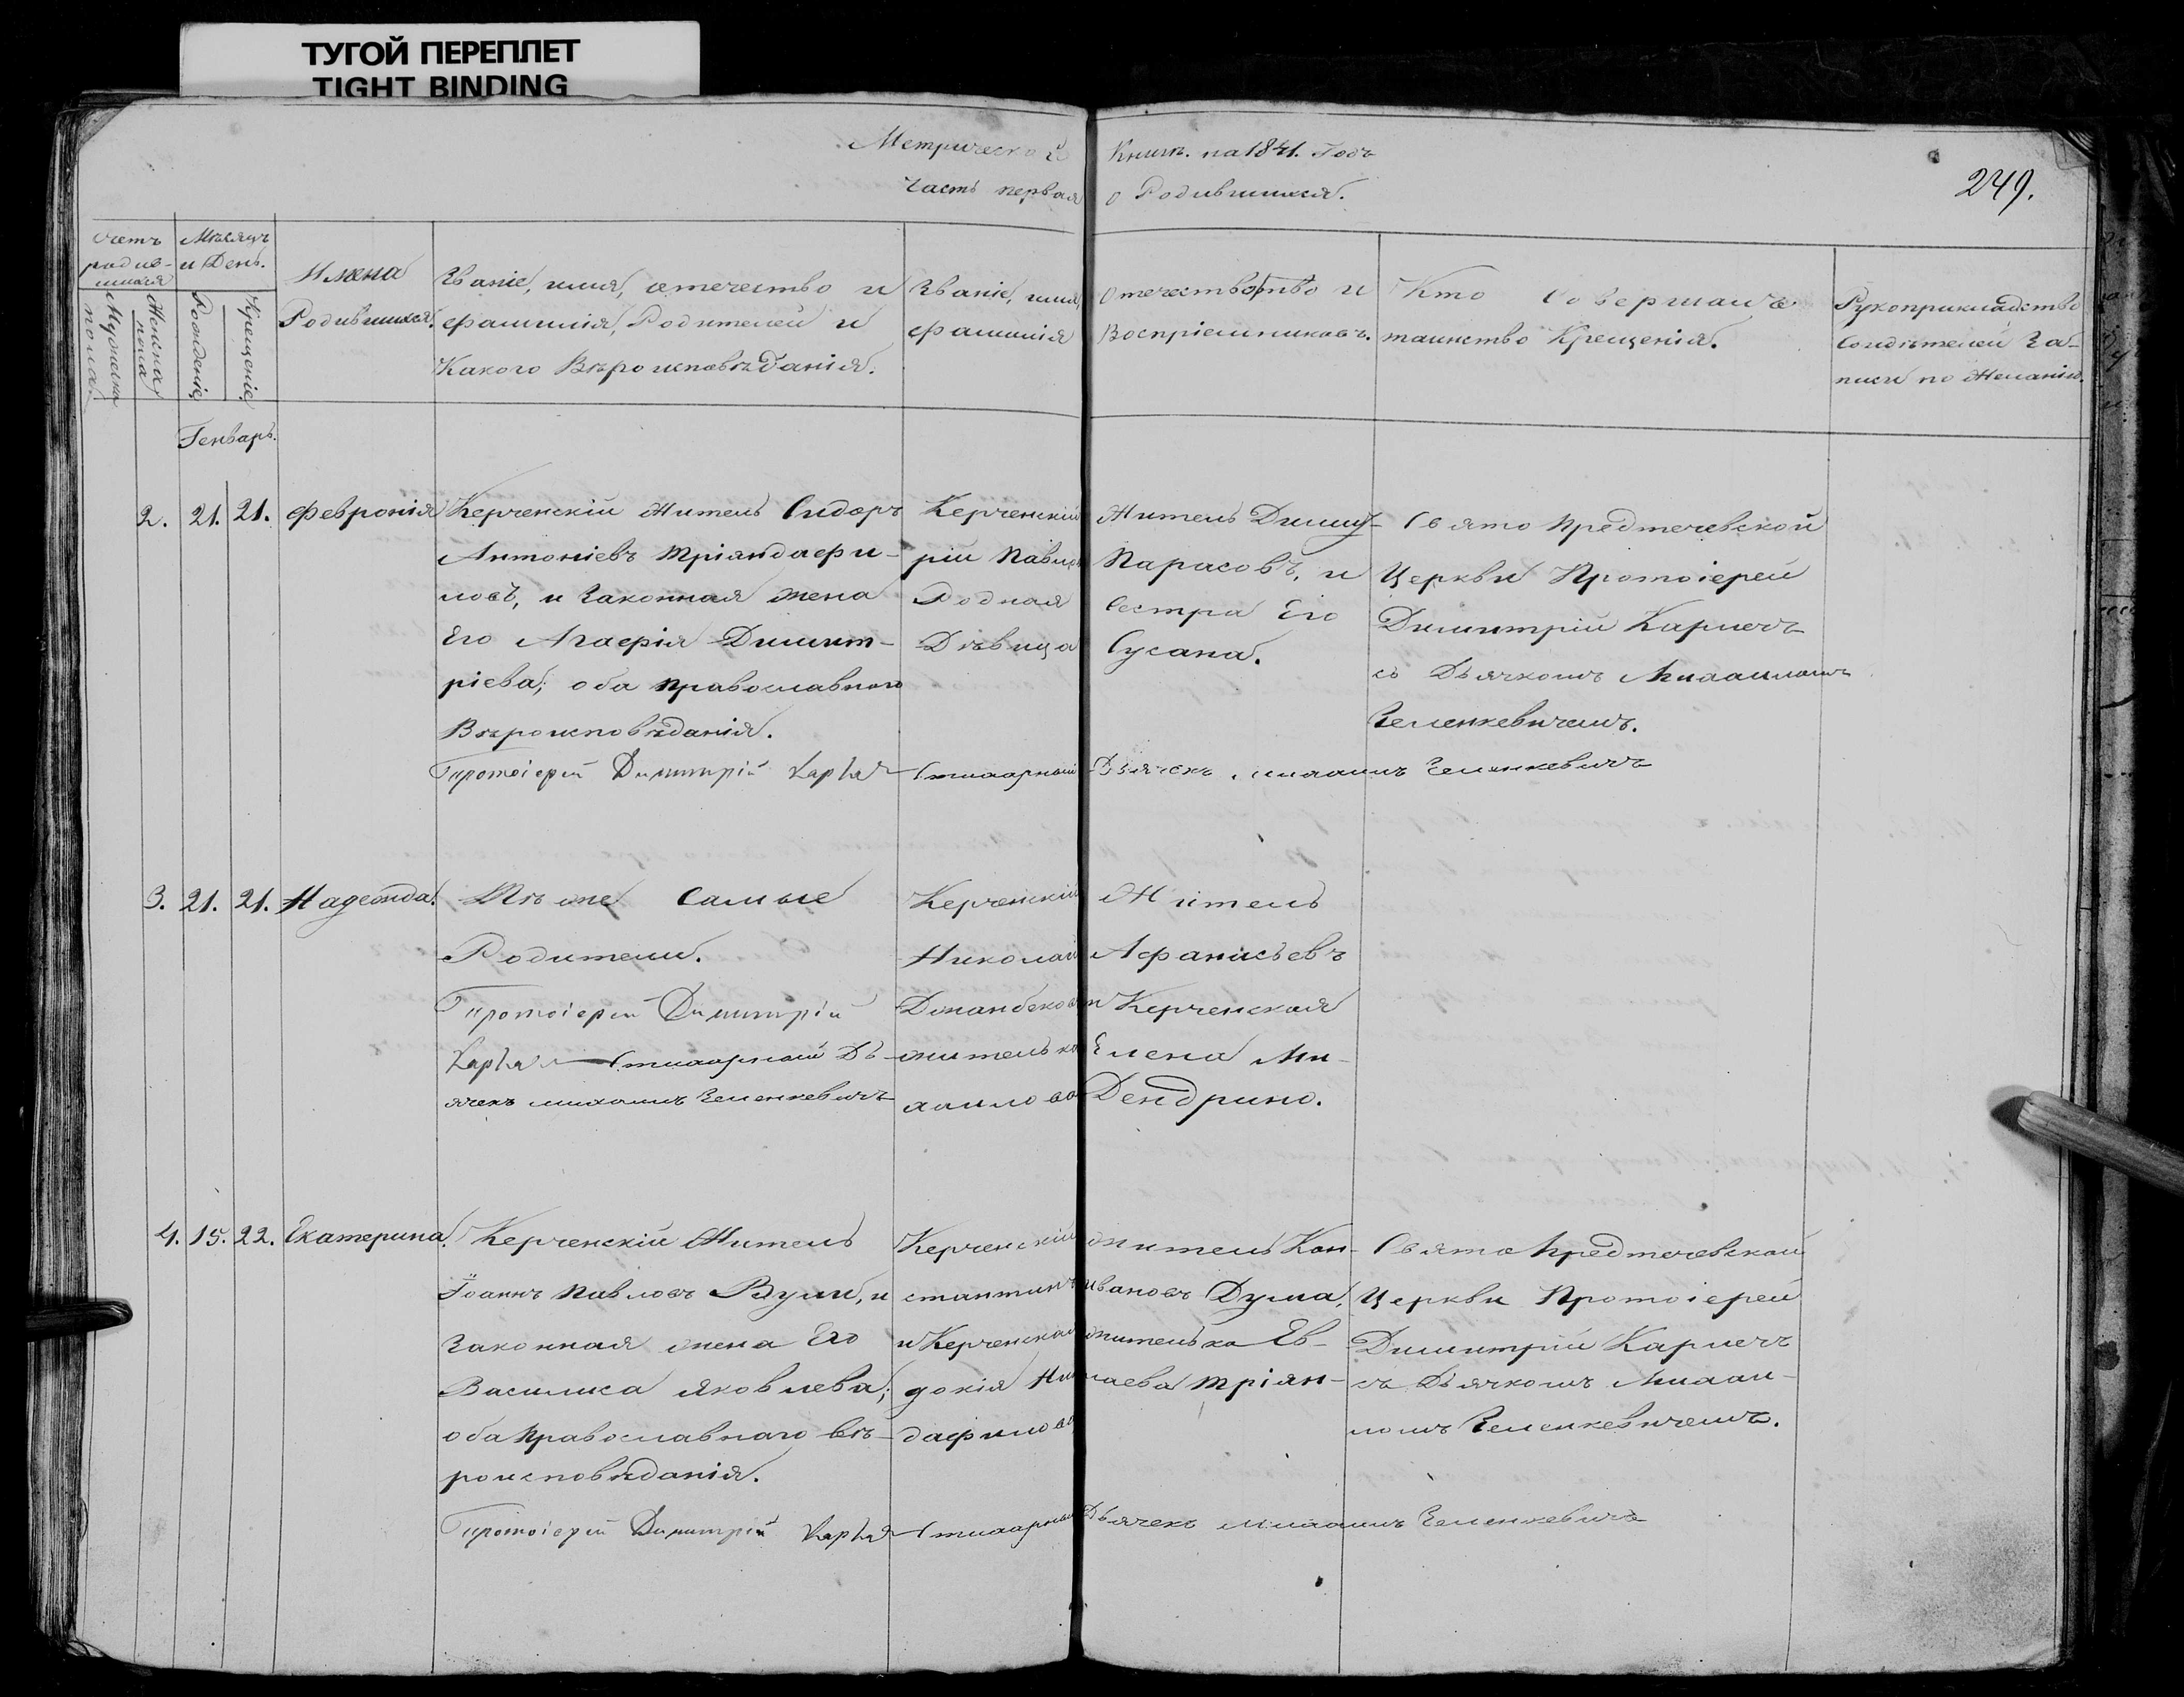 ТУГОЙ ПЕРЕПЛЕТ
TIGHT BINDING
Метрической Книги. на 1841. Годъ
Часть первая о Родившихся.
249.
Счетъ родив-шихся
Мужеска пола.
Женска пола
Мѣсяцъ и День.
Рожденіе
Крещеніе.
Имена
Родившихся.
Званіе, имя, отечество и
фамилія, Родителей и
Какого Вѣроисповѣданія.
Званіе, имя, Отечество и
фамилія Воспріемниковъ.
Кто Совершалъ
таинство Крещенія.
Рукоприкладство
Свидѣтелей За-
писи по Желанію.
Генварь.
2. 21. 21. Февронія
Керченскій Житель Сидоръ
Антоніевъ Тріандафи-
ловъ, и Законная жена
Его Агафія Димит-
ріева; оба православнаго
Вѣроисповѣданія.
Керченскій Житель Димит-
рій Павловъ Парасовъ, и
Родная Сестра Его
Дѣвица Сусана.
Свято Предтечевской
Церкви Протоіерей
Димитрій
съ Дьячкомъ Михаиломъ
Зеленкевичемъ.
Протоіерей Димитрій
Стихарный Дьячекъ михаилъ Зеленкевичъ
3. 21. 21. Надежда.
Тѣ же Самые
Родители.
Протоіерей Димитрій
Стихарный Дь-
ячекъ михаилъ Зеленкевичъ
Керченскій Житель
Николай Афанасьевъ
и Керченская
жителька Елена Ми-
хаилова Дендрино.
4. 15. 22. Екатерина.
Керченскій Житель
Іоаннъ Павловъ Вули, и
Законная жена Его
Василиса Яковлева;
оба Православнаго Вѣ-
роисповѣданія.
Керченскій житель Кон-
стантинъ Ивановъ Дума,
и Керченская жителька Ев-
докія Николаева Тріан-
дафилова
Свято Предтечевской
Церкви Протоіерей
Димитрій
съ Дьячкомъ Михаи-
ломъ Зеленкевичемъ.
Протоіерей Димитрій
Стихарный Дьячекъ Михаилъ Зеленкевичъ